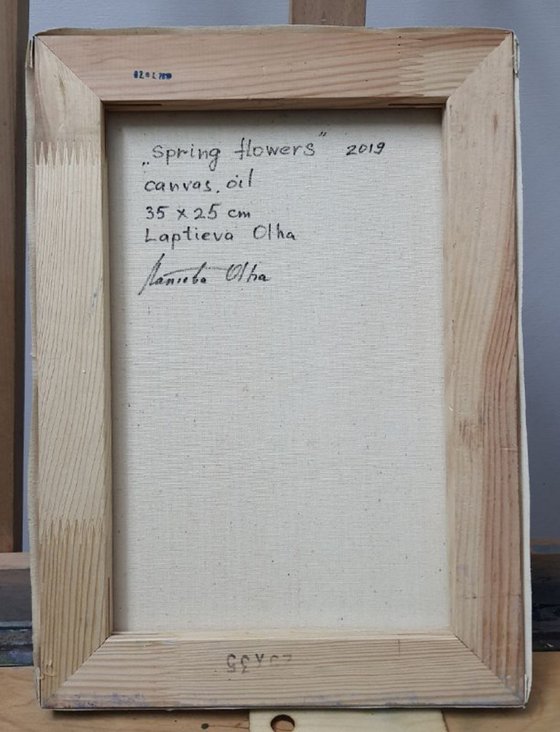 „Spring flowers" 2019
canvas, oil
35 x 25 cm
Laptieva Olha
Лаптєва Olha